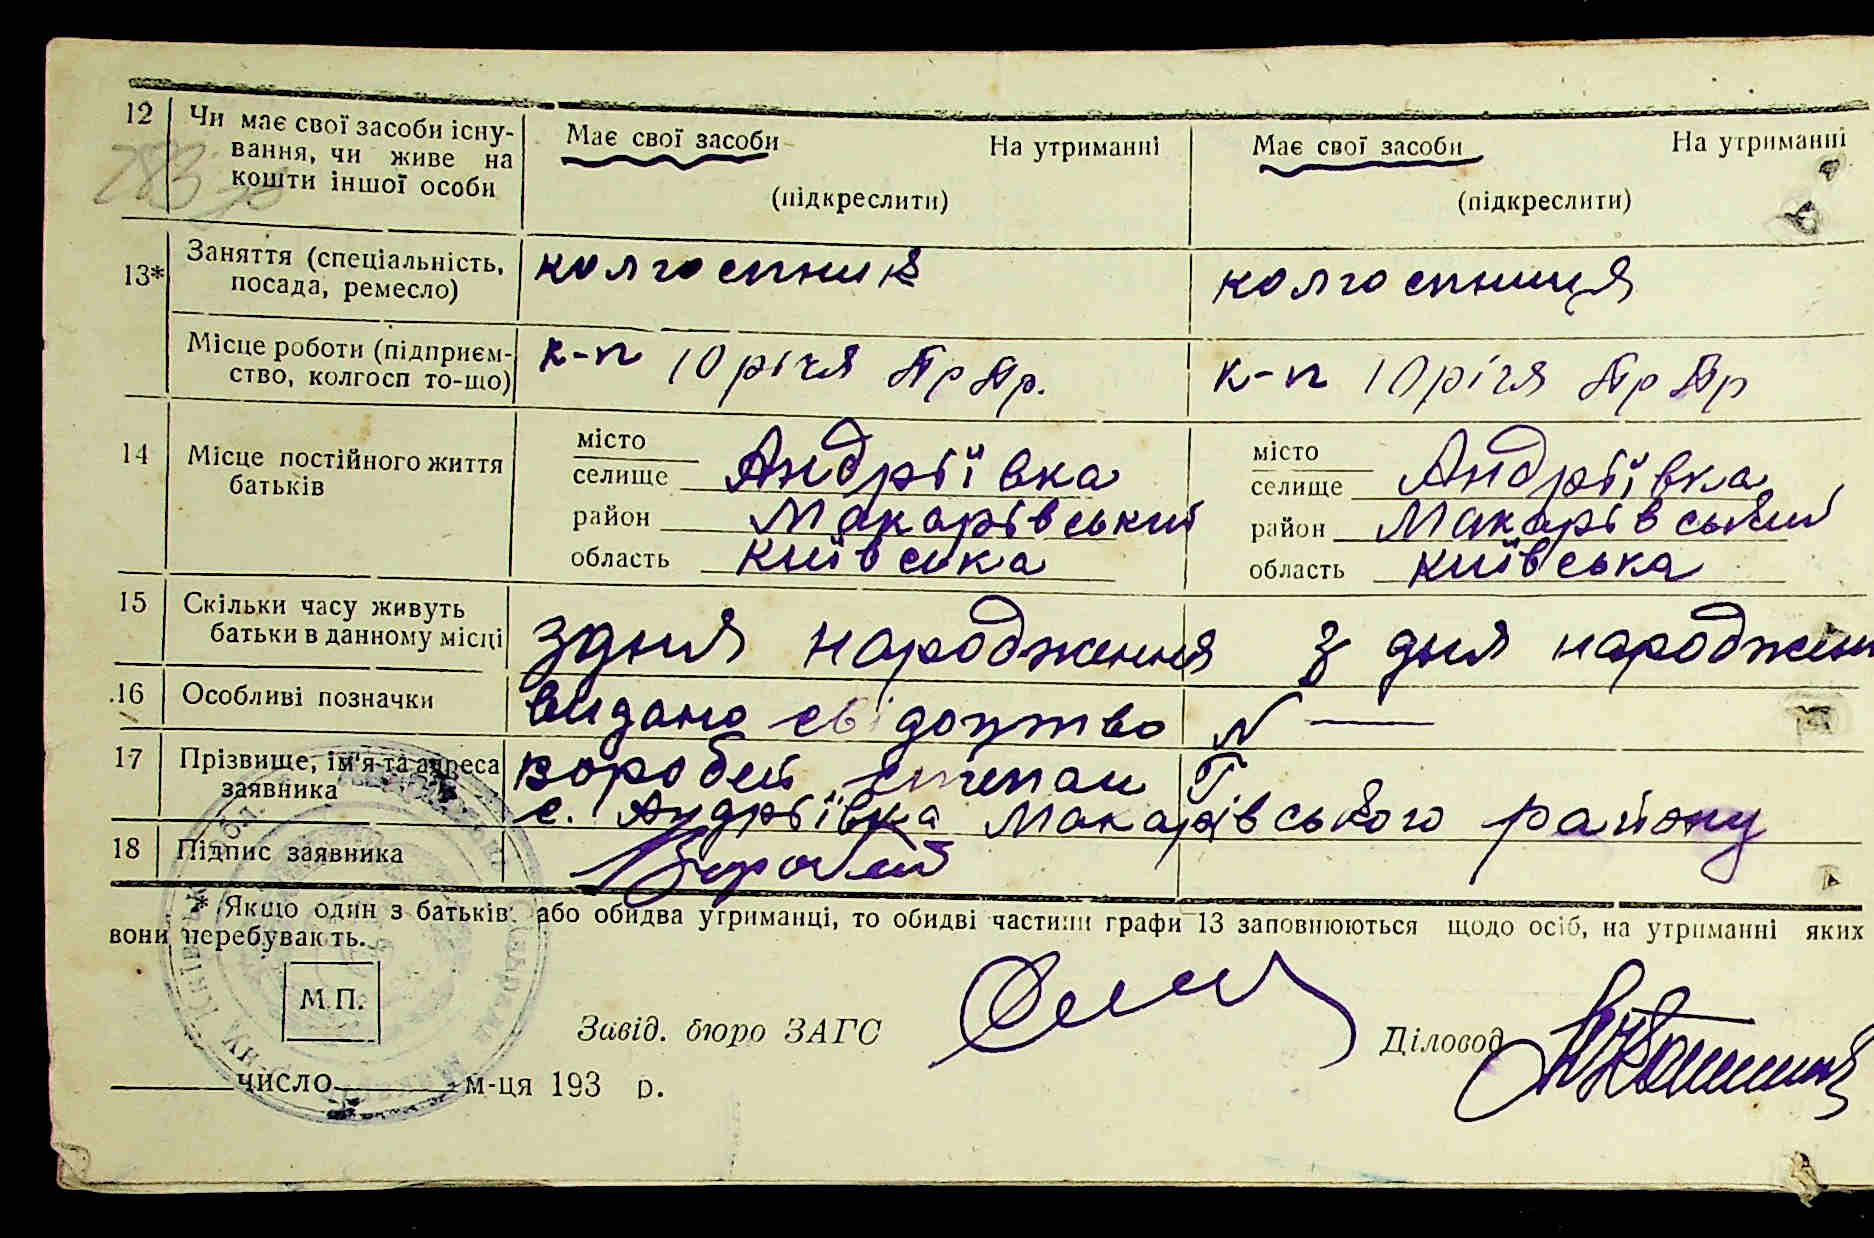 12 Чи має свої засоби існу-
вання, чи живе на
кошти іншої особи
Має свої засоби На утриманні
(підкреслити)
Має свої засоби На утриманні
(підкреслити)
13* Заняття (спеціальність,
посада, ремесло)
колгоспник
колгоспниця
Місце роботи (підприєм-
ство, колгосп то-що)
к-п 10 річя Пр Пр.
к-п 10 річя Пр Пр
14 Місце постійного життя
батьків
місто
селище Андріївка
район Макарівський
область київська
місто
селище Андріївка
район Макарівський
область київська
15 Скільки часу живуть
батьки в данному місці
з дня народження
з дня народжен
16 Особливі позначки
видано свідоцтво N —
17 Прізвище, ім'я та адреса
заявника
воробей степан Г
с. Андріївка Макарівського району
18 Підпис заявника
Воробей
* Якщо один з батьків, або обидва утриманці, то обидві частини графи 13 заповнюються щодо осіб, на утриманні яких
вони перебувають.
М.П.
Завід. бюро ЗАГС
Діловод
число м-ця 193 р.